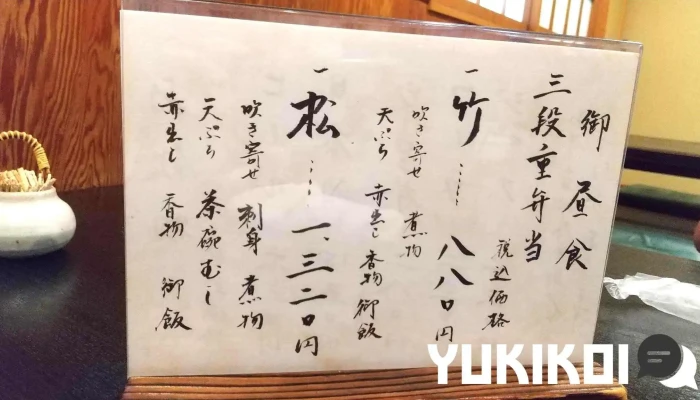 御昼食
三段重弁当
税込価格
一 竹……八八〇円
吹き寄せ 煮物
天ぷら 赤出し 香物 御飯
一 松……一、三二〇円
吹き寄せ 刺身 煮物
天ぷら 茶碗むし
赤出し 香物 御飯
YUKIKOI